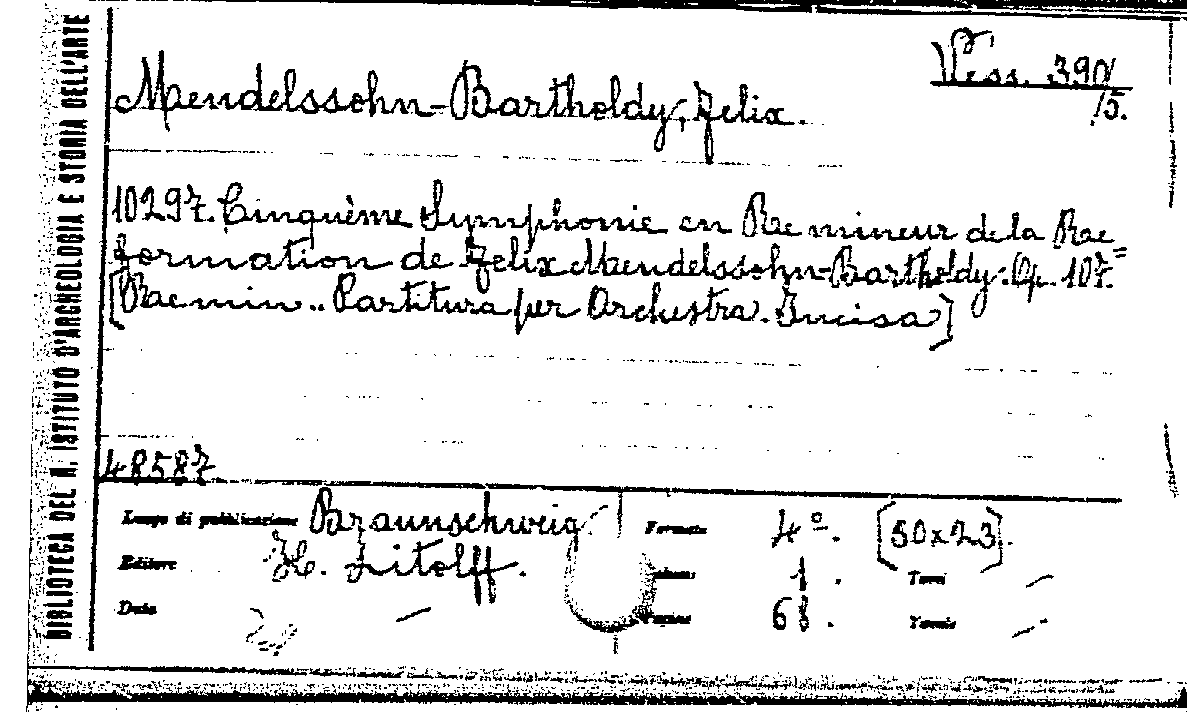 BIBLIOTECA DEL R. ISTITUTO D'ARCHEOLOGIA E STORIA DELL'ARTE
Vess. 390/
15.
Mendelssohn-Bartholdy, Felix.
10297. Cinquème Symphonie en Re mineur de la Re=
formation de Felix Mendelssohn-Bartholdy: Op. 107.
[Re min.. Partitura per Orchestra. Incisa]
48587
Luogo di pubblicazione Braunschweig
Formato 4º. [30x23].
Editore H. Litolff.
Volumi 1. Tomi —
Data —
Pagine 68. Tavole —